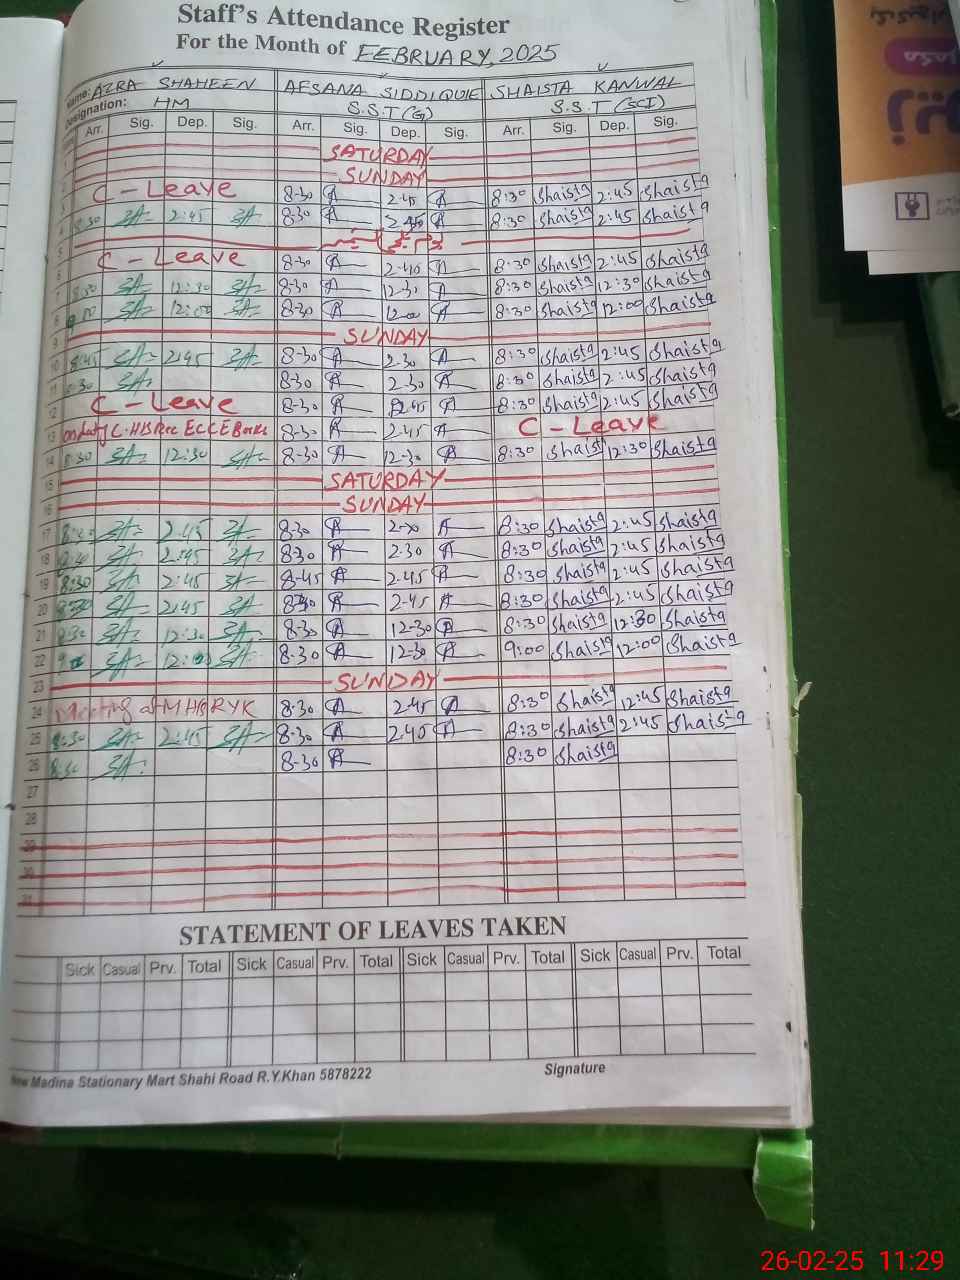 Staff's Attendance Register
For the Month of FEBRUARY, 2025
Name: AZRA SHAHEEN AFSANA SIDDIQUIE SHAISTA KANWAL
Designation: HM S.S.T (G) S.S.T (SCI)
Arr. Sig. Dep. Sig. Arr. Sig. Dep. Sig. Arr. Sig. Dep. Sig.
1 SATURDAY
2 SUNDAY
3 C-Leave 8-30 A 2-45 A 8:30 Shaista 2:45 Shaista
4 8:30 SA 2:45 SA 8-30 A 2-45 A 8:30 Shaista 2:45 Shaista
5
6 C-Leave 8-30 A 2-40 A 8:30 Shaista 2:45 Shaista
7 8:30 SA 12:30 SA 8-30 A 12-30 A 8:30 Shaista 12:30 Shaista
8 SA 12:00 SA 8-30 A 12-00 A 8:30 Shaista 12:00 Shaista
9 SUNDAY
10 8:45 SA 2:45 SA 8-30 A 2-30 A 8:30 Shaista 2:45 Shaista
11 8:30 SA 8-30 A 2-30 A 8:30 Shaista 2:45 Shaista
12 C-Leave 8-30 A 2-45 A 8:30 Shaista 2:45 Shaista
13 on duty ECCE Books 8-30 A 2-45 A C-Leave
14 8:30 SA 12:30 SA 8-30 A 12-30 A 8:30 Shaista 12:30 Shaista
15 SATURDAY
16 SUNDAY
17 SA 2:45 SA 8-30 A 2-30 A 8:30 Shaista 2:45 Shaista
18 SA 2:45 SA 8-30 A 2-30 A 8:30 Shaista 2:45 Shaista
19 8:30 SA 2:45 SA 8-45 A 2-45 A 8:30 Shaista 2:45 Shaista
20 8:30 SA 2:45 SA 8-30 A 2-45 A 8:30 Shaista 2:45 Shaista
21 8:30 SA 12:30 SA 8-30 A 12-30 A 8:30 Shaista 12:30 Shaista
22 SA SA 8-30 A 12-30 A 9:00 Shaista 12:00 Shaista
23 SUNDAY
24 Meeting at RYK 8-30 A 2-45 A 8:30 Shaista 12:45 Shaista
25 8:30 SA 2:45 SA 8-30 A 2-45 A 8:30 Shaista 2:45 Shaista
26 8:30 SA 8-30 A 8:30 Shaista
27
28
29
30
31
STATEMENT OF LEAVES TAKEN
Sick Casual Prv. Total Sick Casual Prv. Total Sick Casual Prv. Total Sick Casual Prv. Total
Madina Stationary Mart Shahi Road R.Y.Khan 5878222 Signature
26-02-25 11:29